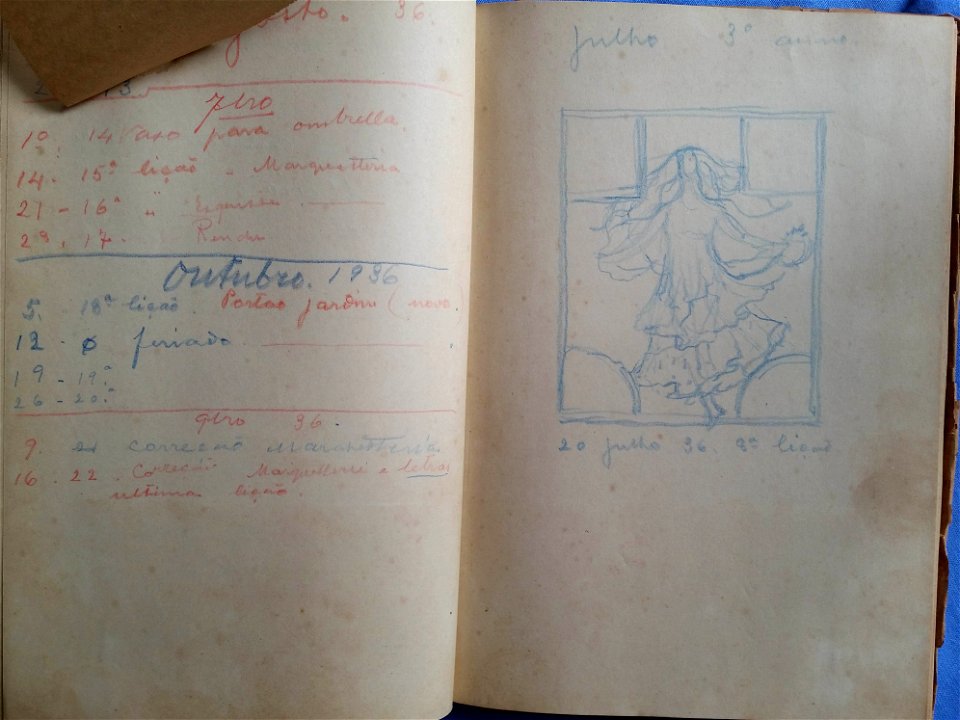 36.
7bro
14 Vaso para ombrella.
14 - 15ª lição " Marquetteria
21 - 16ª "
28, 17
Outubro. 1936
5. 18ª lição. Portão jardim (novo)
12 - feriado
19 - 19.ª
26 - 20.ª
9bro 36.
9. 21 correcção Marchetteria
16. 22. Correcção Marquetterie e letras
ultima lição.
julho 3º anno.
20 julho 36. lição